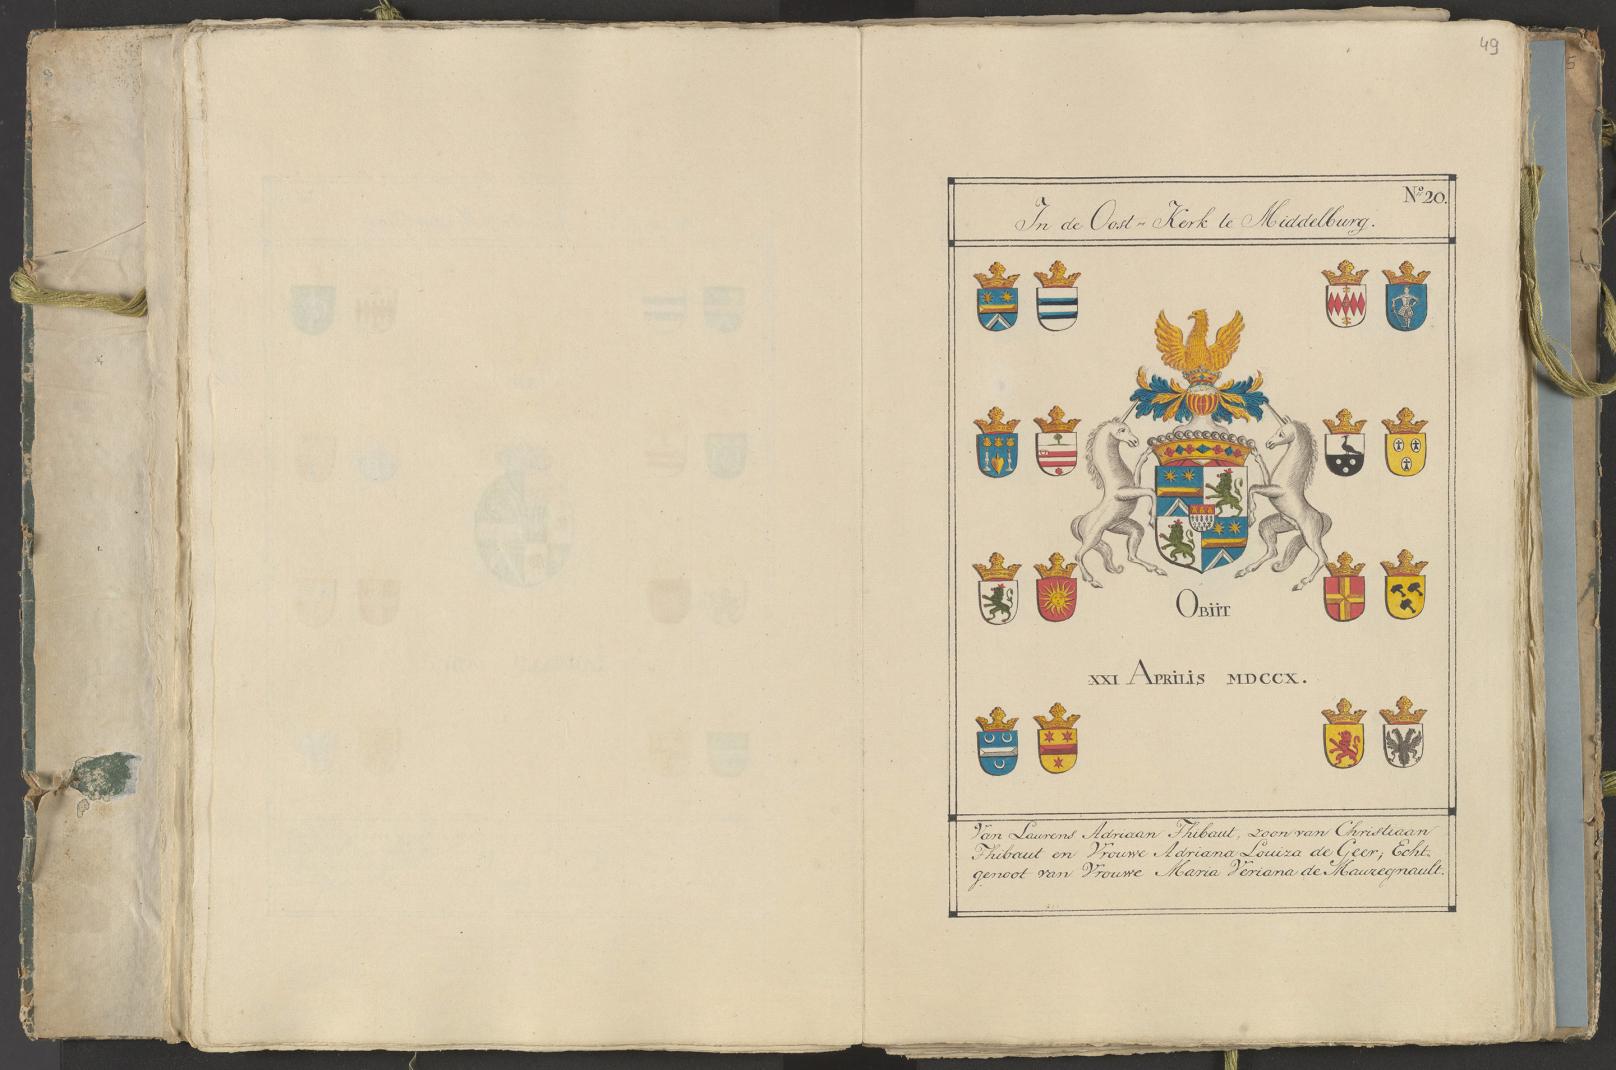 49
5
Nº 20.
In de Oost-Kerk te Middelburg.
Obiit
XXI Aprilis MDCCX.
Van Laurens Adriaan Thibaut, zoon van Christiaan
Thibaut en Vrouwe Adriana Louiza de Geer; Echt-
genoot van Vrouwe Maria Veriana de Mauregnault.